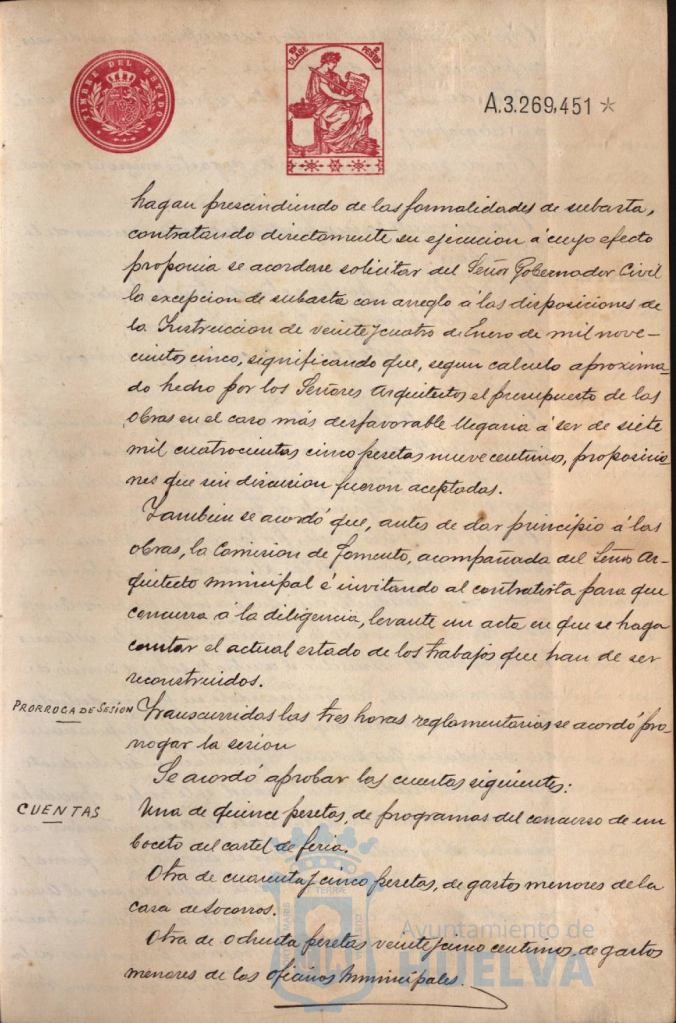 TIMBRE DEL ESTADO
CLASE
PESETAS
A.3.269,451 *
hagan prescindiendo de las formalidades de subasta,
contratando directamente su ejecucion á cuyo efecto
proponia se acordase solicitar del Señor Gobernador Civil
la excepcion de subasta con arreglo á las disposiciones de
la Instruccion de veinte y cuatro de Enero de mil nove-
cientos cinco, significando que, segun calculo aproxima-
do hecho por los Señores Arquitectos el presupuesto de las
obras en el caso más desfavorable llegaria á ser de siete
mil cuatrocientas cinco pesetas nueve centimos, proposicio-
nes que sin discusion fueron aceptadas.
Tambien se acordó que, antes de dar principio á las
obras, la Comision de Fomento, acompañada del Señor Ar-
quitecto municipal é invitando al contratista para que
concurra á la diligencia, levante un acta en que se haga
constar el actual estado de los trabajos que han de ser
reconstruidos.
PRORROGA DE SESIÓN Transcurridas las tres horas reglamentarias se acordó pro-
rrogar la sesion
Se acordó aprobar las cuentas siguientes:
CUENTAS Una de quince pesetas, de programas del concurso de un
boceto del cartel de feria.
Otra de cuarenta y cinco pesetas, de gastos menores de la
casa de socorros.
Otra de ochenta pesetas veinte y cinco centimos, de gastos
menores de las oficinas municipales.
Ayuntamiento de
HUELVA